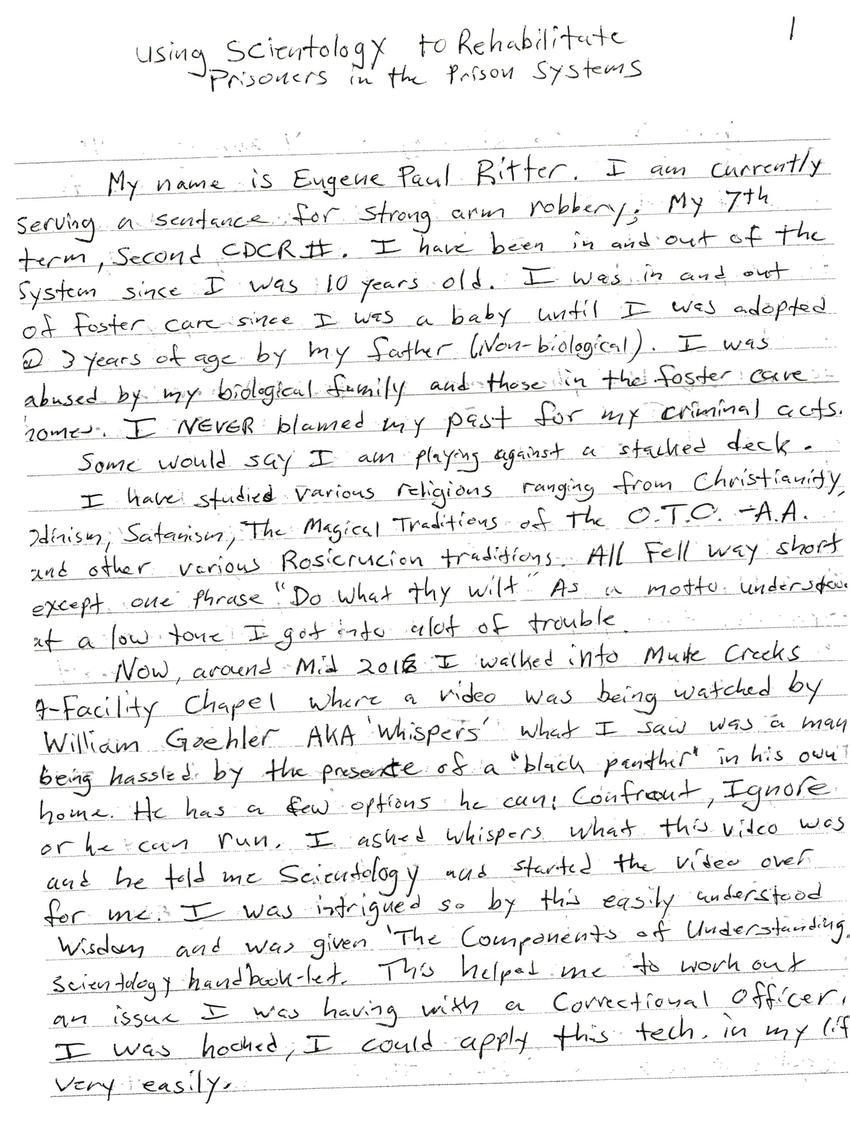 1
Using Scientology to Rehabilitate
Prisoners in the Prison Systems
My name is Eugene Paul Ritter. I am currently
serving a sentance for strong arm robbery; My 7th
term, Second CDCR #. I have been in and out of the
System since I was 10 years old. I was in and out
of foster care since I was a baby until I was adopted
@ 3 years of age by my father (Non-biological). I was
abused by my biological family and those in the foster care
homes. I NEVER blamed my past for my criminal acts.
Some would say I am playing against a stacked deck.
I have studied various religions ranging from Christianity,
Odinism, Satanism, The Magical Traditions of the O.T.O. - A.A.
and other various Rosicrucion traditions. All Fell way short
except one phrase "Do what thy wilt" As a motto understood
at a low tone I got into alot of trouble.
Now, around Mid 2018 I walked into Mule Creeks
A-Facility Chapel where a video was being watched by
William Goehler AKA 'Whispers' what I saw was a man
being hassled by the presence of a "black panther" in his own
home. He has a few options he can: Confront, Ignore
or he can run. I asked whispers what this video was
and he told me Scientology and started the video over
for me. I was intrigued so by this easily understood
Wisdom and was given 'The Components of Understanding
Scientology handbook-let. This helped me to work out
an issue I was having with a Correctional Officer.
I was hooked, I could apply this tech. in my lif
very easily.